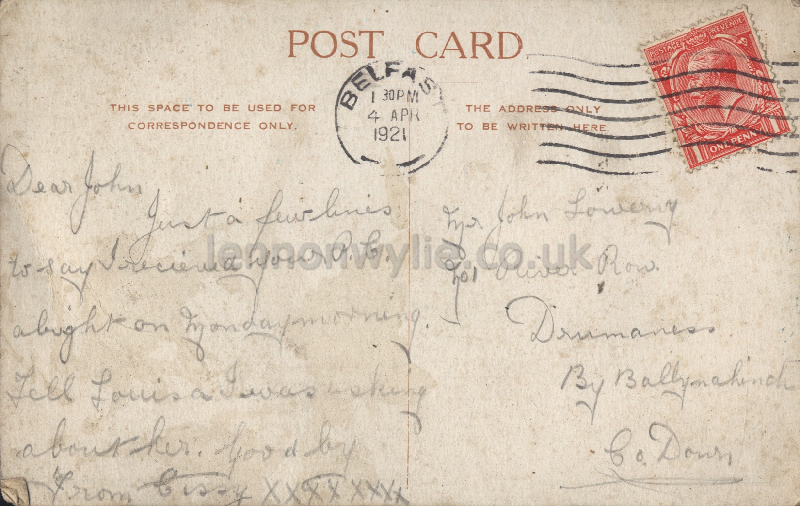 POST CARD
BELFAST
1 30PM
4 APR
1921
POSTAGE REVENUE
1 ONE PENNY 1
THIS SPACE TO BE USED FOR
CORRESPONDENCE ONLY.
THE ADDRESS ONLY
TO BE WRITTEN HERE
Dear John
Just a few lines
to say I recieved your P.C.
alright on Monday morning.
Tell Louisa I was asking
about her. Good by
From Cissy XXXXXXXX
Mr John Lowery
River Row
Drumaness
By Ballynahinch
Co Down
lennonwylie.co.uk